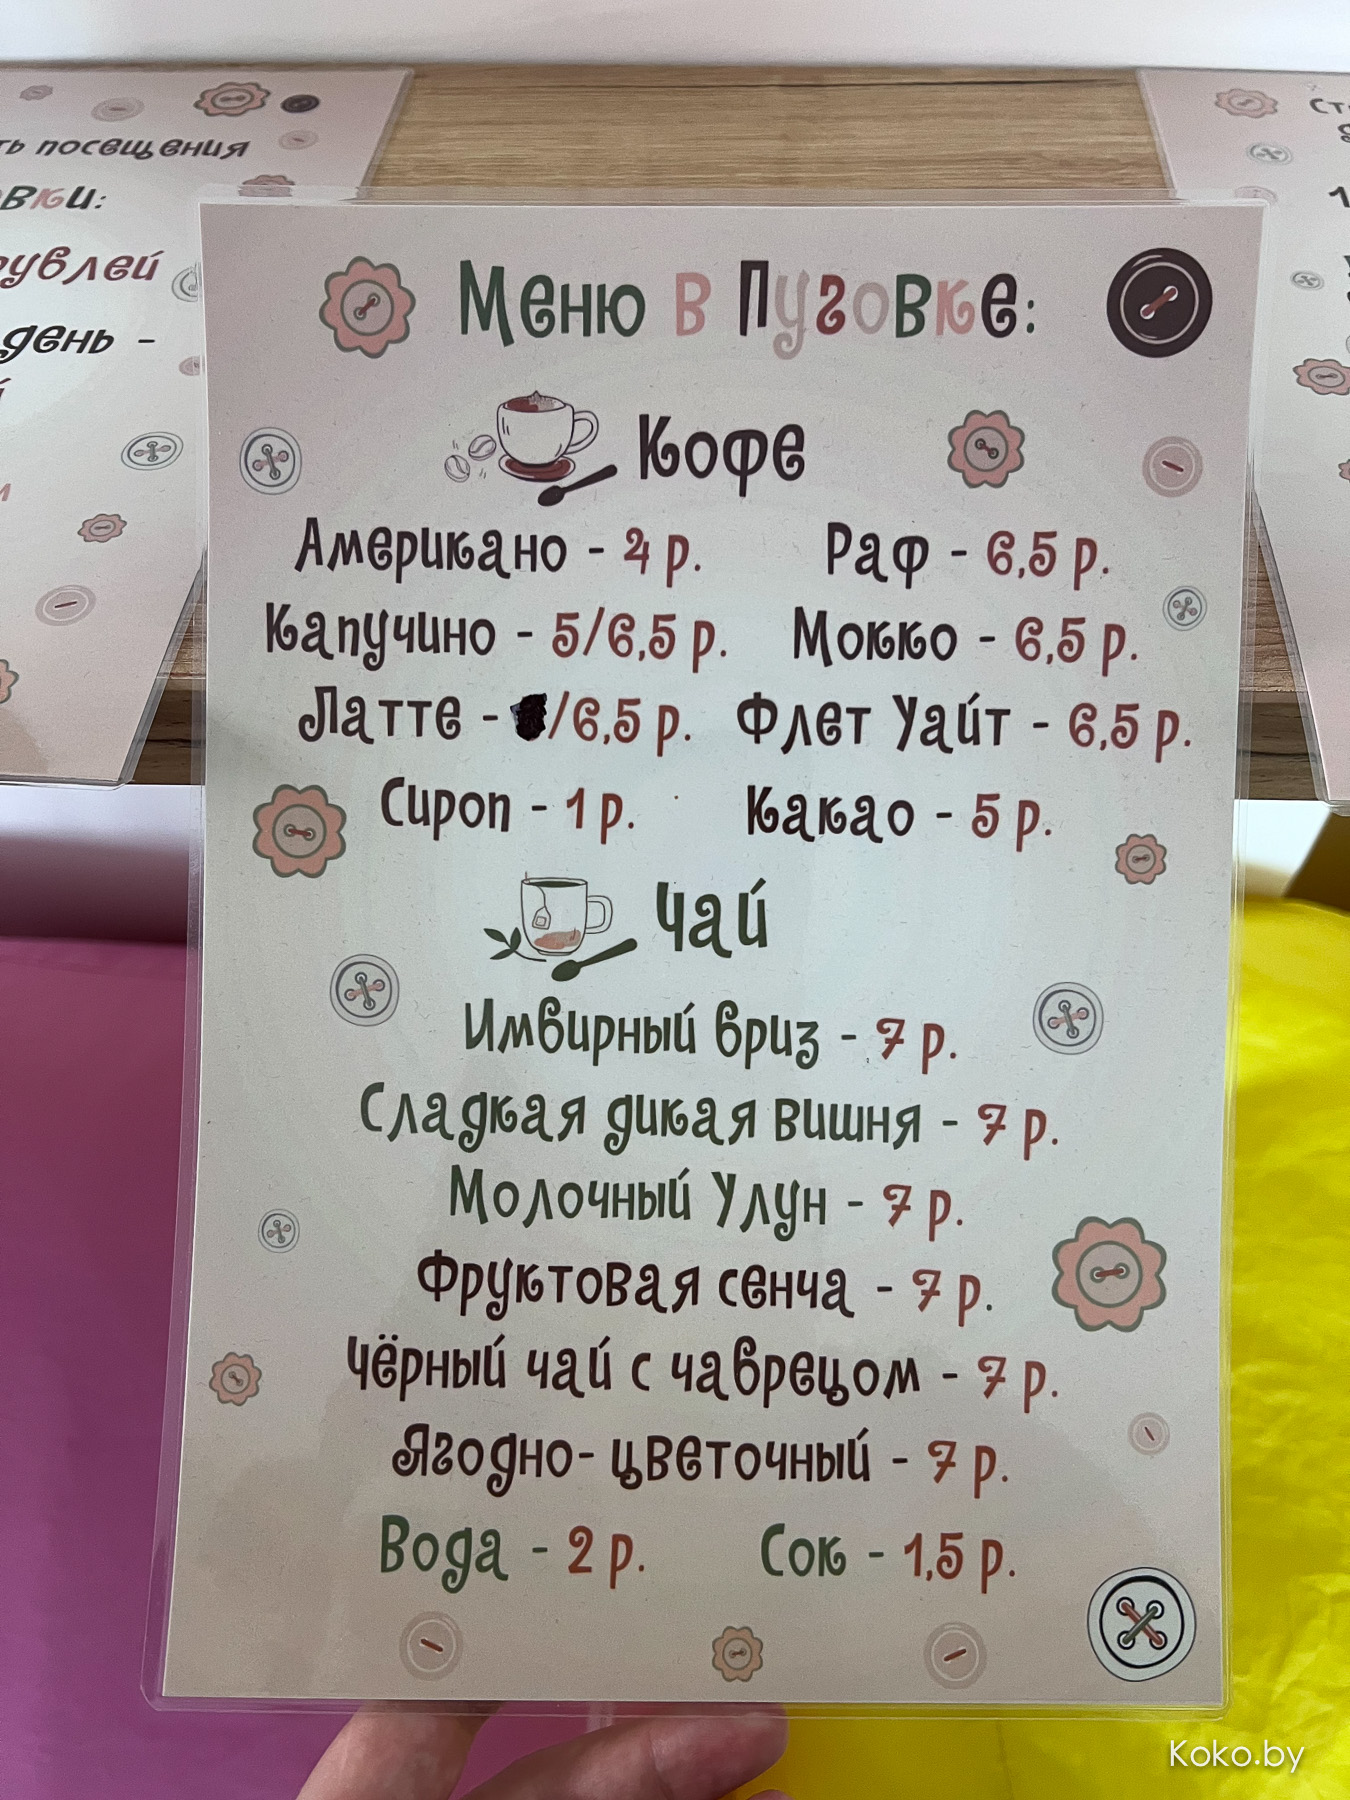 посещения
рублей
день -
Меню в Пуговке:
Кофе
Американо - 4 р. Раф - 6,5 р.
Капучино - 5/6,5 р. Мокко - 6,5 р.
Латте - /6,5 р. Флет Уайт - 6,5 р.
Сироп - 1 р. Какао - 5 р.
Чай
Имбирный бриз - 7 р.
Сладкая дикая вишня - 7 р.
Молочный Улун - 7 р.
Фруктовая сенча - 7 р.
Чёрный чай с чабрецом - 7 р.
Ягодно- цветочный - 7 р.
Вода - 2 р. Сок - 1,5 р.
Koko.by